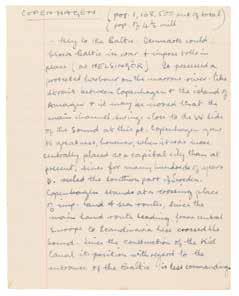 COPENHAGEN (pop. 1,108,500 out of total
pop. of 4½ mill
- Key to the Baltic. Denmark could
block Baltic in war & impose tolls in
peace (at HELSINGØR). It possessed a
protected harbour on the narrow river-like
strait between Copenhagen & the island of
Amager & it may be noted that the
main channel swings close to the W side
of the Sound at this pt. Copenhagen grew
to greatness, however, when it was more
centrally placed as a capital city than at
present, since for many hundreds of years
D. ruled the southern part of Sweden.
Copenhagen stands at a crossing place
of imp. land & sea routes, since the
main land route leading from central
Europe to Scandinavia here crossed the
Sound. Since the construction of the Kiel
Canal its position with regard to the
entrance of the Baltic is less commanding